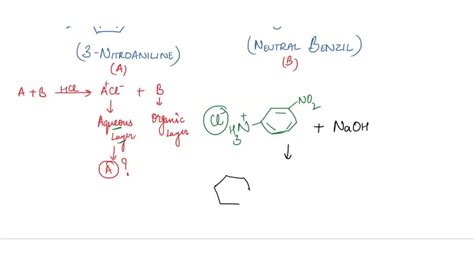 (3-NITROANILINE)
(A)
(NEUTRAL BENZIL)
(B)
A + B HCl A⁺Cl⁻ + B
Aqueous Layer
Organic Layer
A ?
Cl⁻ H₃N⁺ NO₂ + NaOH